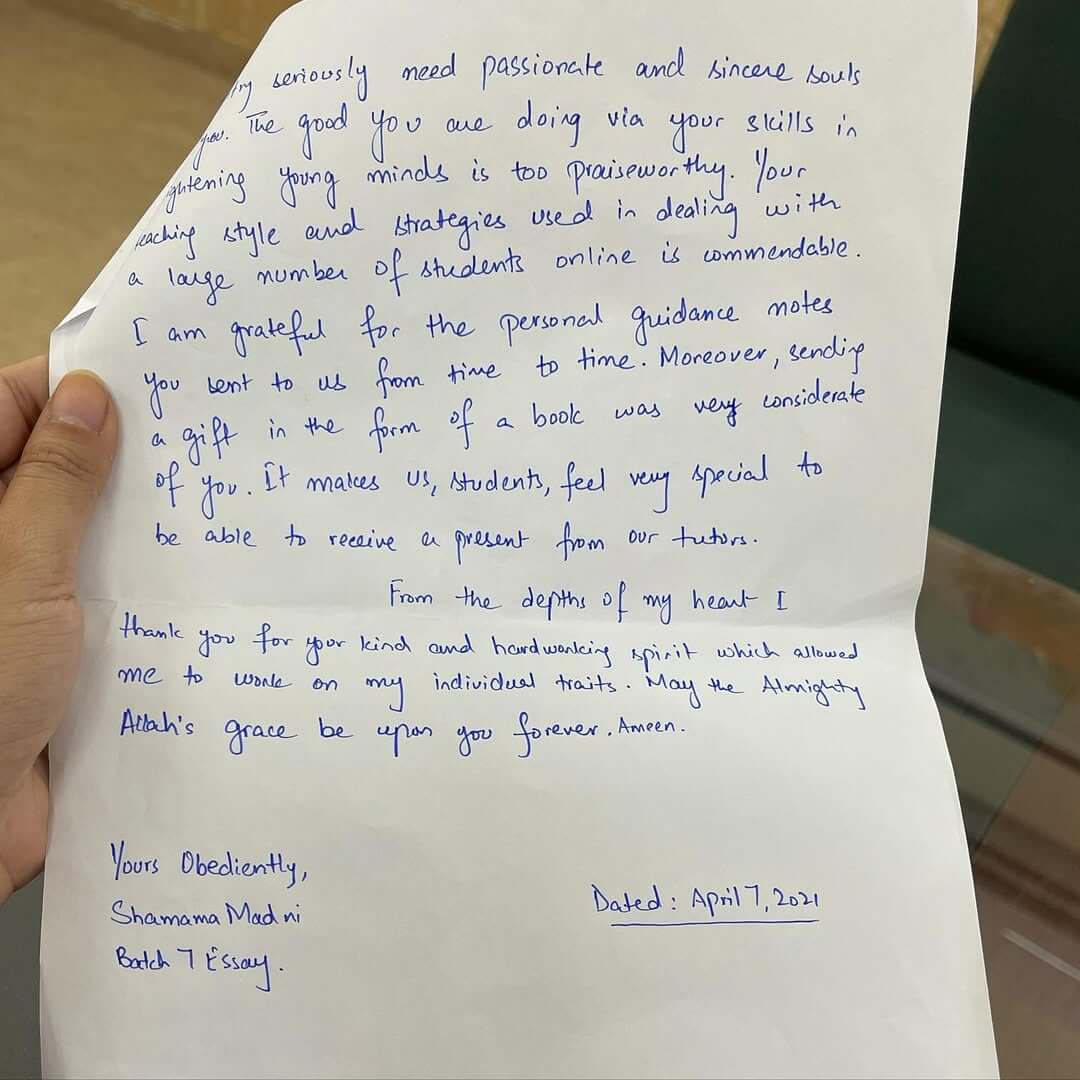 seriously need passionate and sincere souls
you. The good you are doing via your skills in
ghtening young minds is too praiseworthy. Your
teaching style and strategies used in dealing with
a large number of students online is commendable.
I am grateful for the personal guidance notes
you sent to us from time to time. Moreover, sending
a gift in the form of a book was very considerate
of you. It makes us, students, feel very special to
be able to receive a present from our tutors.
From the depths of my heart I
thank you for your kind and hardworking spirit which allowed
me to work on my individual traits. May the Almighty
Allah's grace be upon you forever. Ameen.
Yours Obediently,
Shamama Madni
Dated: April 7, 2021
Batch 7 Essay.